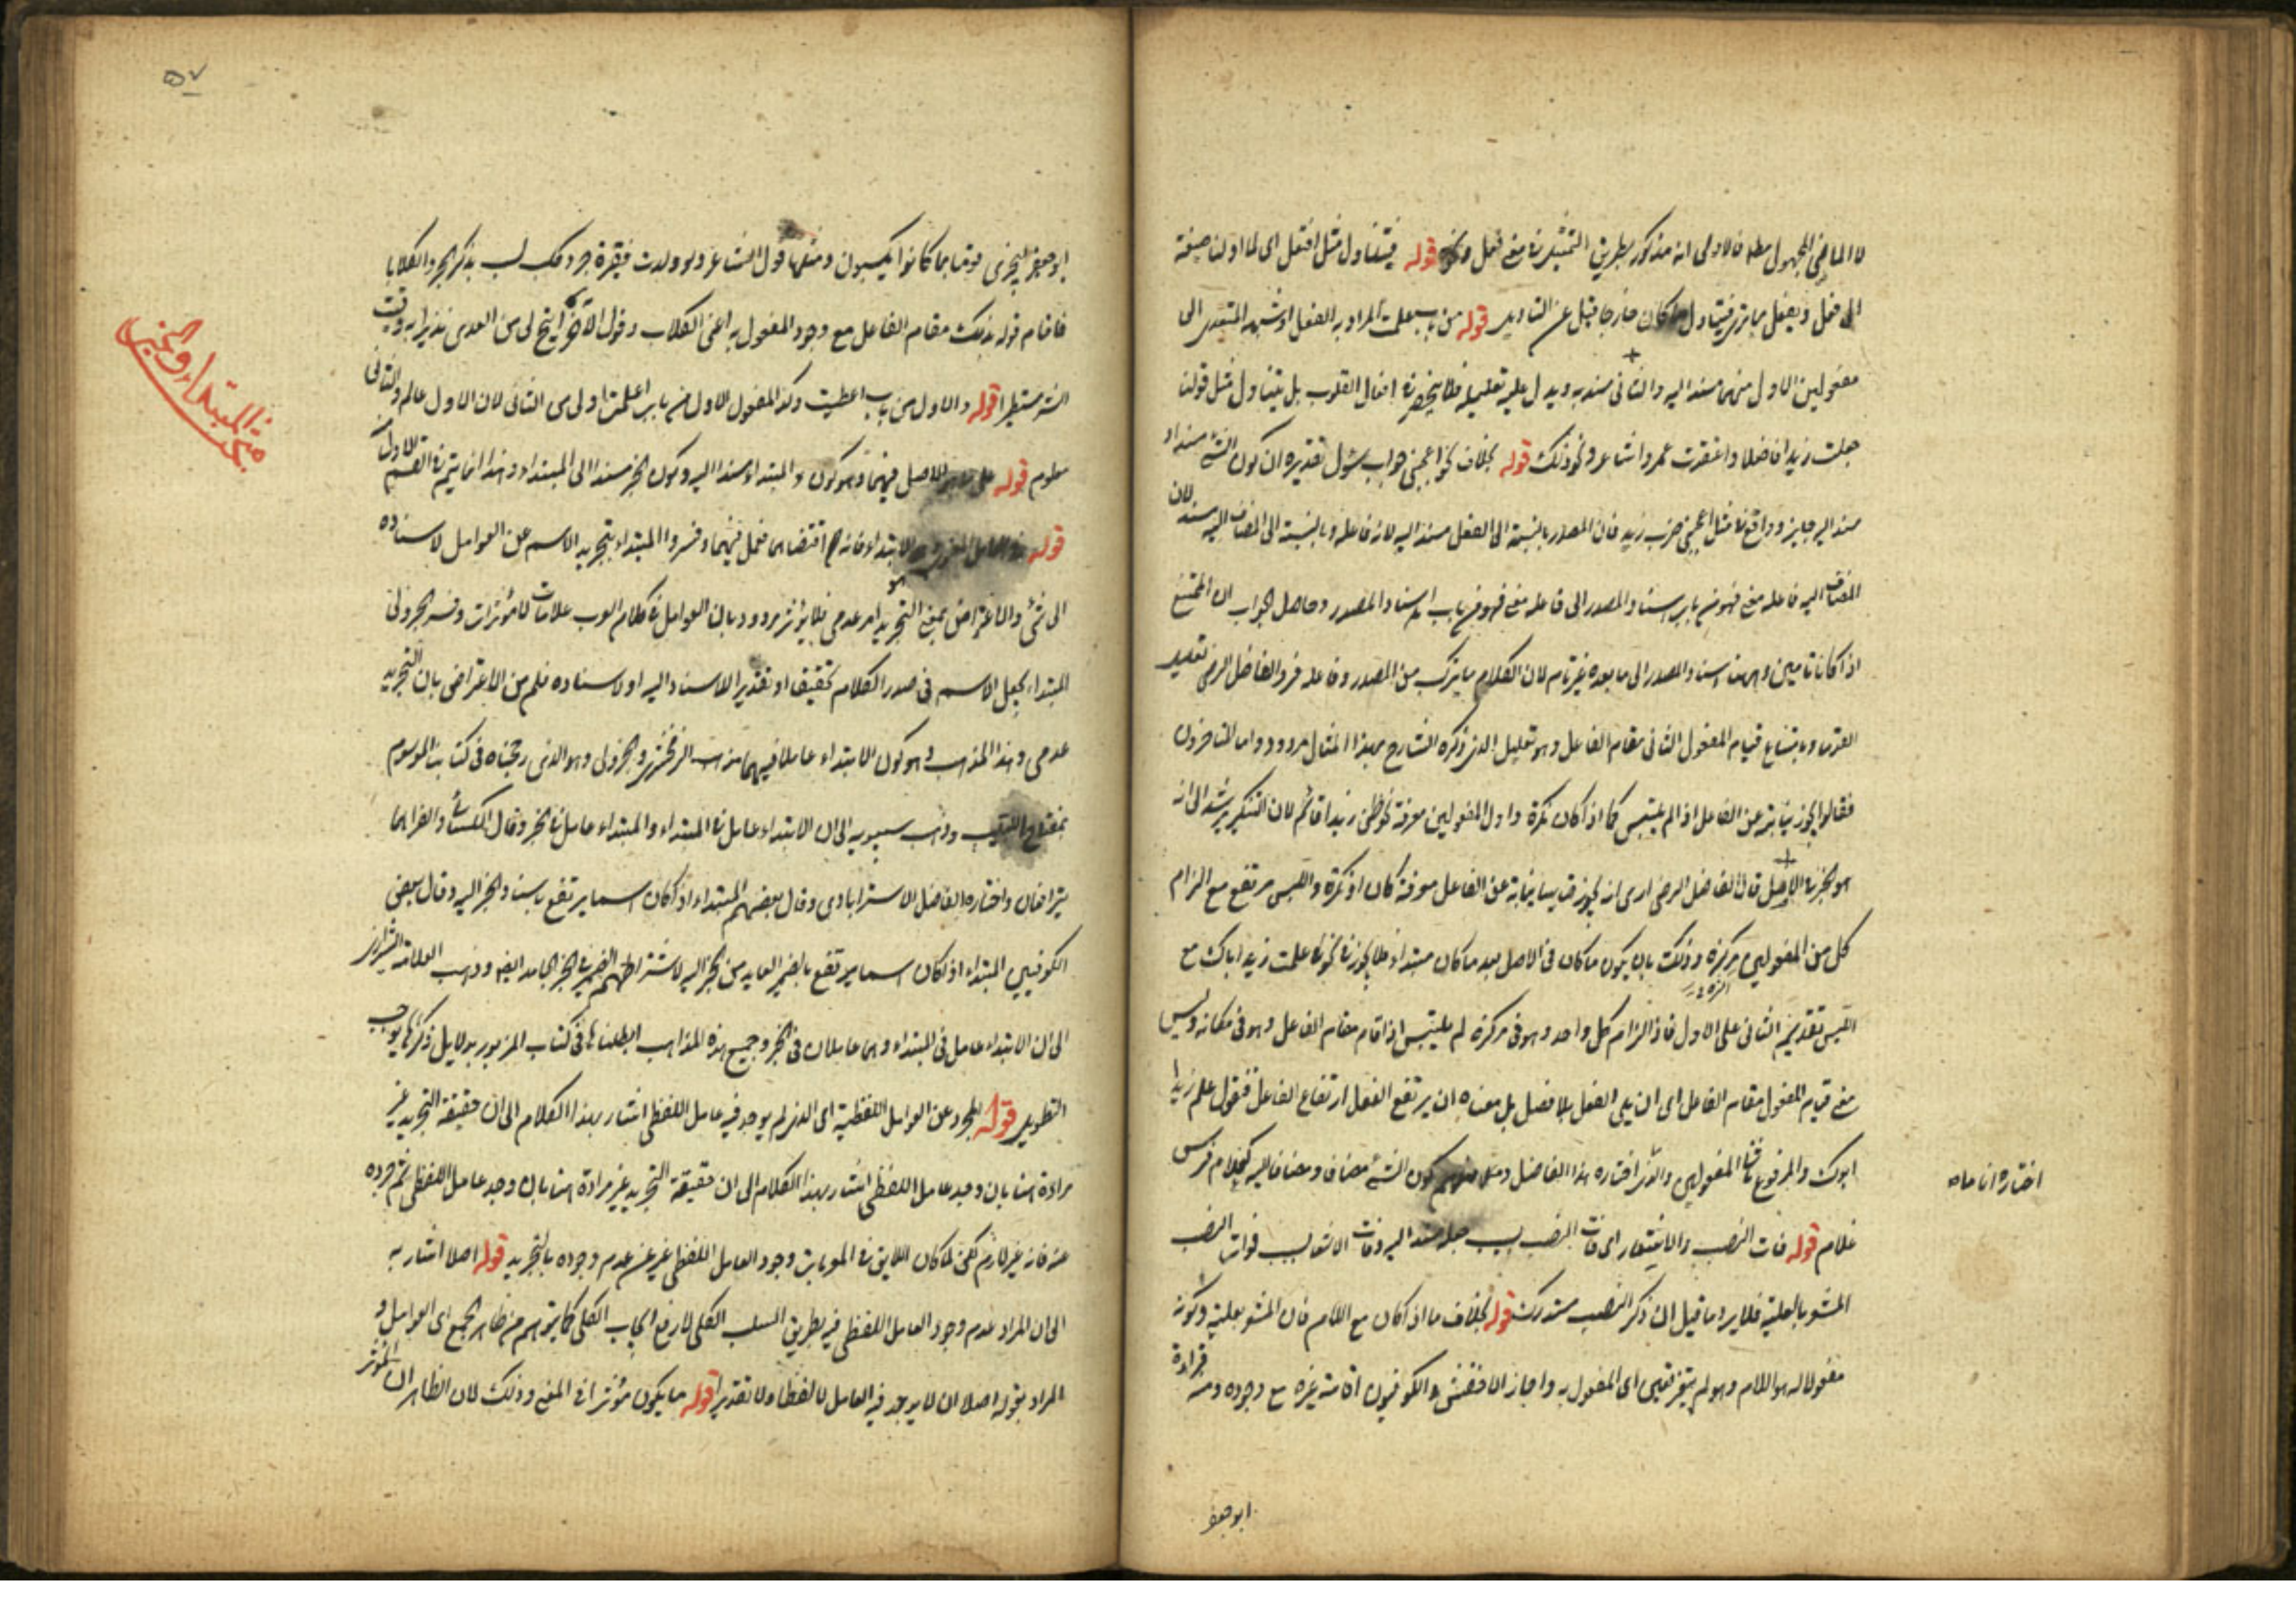 لا الماضى المجهول مطلقا فالاولى انه مذكور بطريق التمثيل فى معنى فعل قوله فيتناول مثل افتعل اى لما اولنا صيغة
الى فعل ويفعل مما يتناول ما كان خارجا قبل عن التأويل قوله من باب علمت المراد به الفعل المتعدى الى
مفعولين الاول منهما مسند اليه والثانى مسند به ويدل عليه تعليله فلا ينحصر فى افعال القلوب بل يتناول مثل قولنا
جعلت زيدا فاضلا واعتقدت عمروا شاعرا ونحو ذلك قوله بخلاف نحو اعجبنى جواب سؤال تقديره ان كون الشئ مسندا و
مسندا اليه جايز وواقع فى مثل اعجبنى ضرب زيد فان المصدر بالنسبة الى الفعل مسند اليه لانه فاعله وبالنسبة الى المضاف اليه مسند لان
المضاف اليه فاعله معنى فهو من باب اسناد المصدر الى فاعله معنى فهو من باب اسناد المصدر وحاصل الجواب ان الممتنع
اذا كانا تامين وههنا اسناد المصدر الى ما بعده غير تام لان الكلام ما يتركب من المصدر وفاعله فرد الفاضل الرضى تعليل
القدماء بامتناع قيام المفعول الثانى مقام الفاعل وهو تعليل الذى ذكره الشارح بهذا المثال مردود واما المتاخرون
فقالوا يجوز نيابته عن الفاعل اذا لم يلتبس كما اذا كان نكرة واول المفعولين معرفة نحو ظن زيدا قائم لان التنكير يرشد الى انه
هو الخبر فى الاصل قال الفاضل الرضى ارى انه يجوز قياسا نيابته عن الفاعل معرفة كان او نكرة واللبس مرتفع مع الزام
كل من المفعولين مركزه وذلك بان يكون ما كان فى الاصل بعد ما كان مبتداء فلا يجوز فى نحو علمت زيدا اباك مع
اللبس تقديم الثانى على الاول فاذا لزم كل واحد وهو فى مركزه لم يلتبس اذا قام مقام الفاعل وهو فى مكانه وليس
معنى قيام المفعول مقام الفاعل اى ان يلى الفعل بلا فصل بل معناه ان يرتفع الفعل ارتفاع الفاعل فتقول علم زيدا
ابوك والمرفوع ثانى المفعولين والذى اختاره هذا الفاضل كون الشئ مضافا ومضافا اليه كغلام فرس
اختاره اناماه
غلام قوله فات النصب والاشعار اى فات النصب بسبب جعله مسند اليه وفات الاشعار بسبب فوات النصب
المشعر بالعلية فلا يرد ما قيل ان ذكر النصب مستدرك قوله بخلاف ما اذا كان مع اللام فان المشعر بعليته وكونه
مفعولا له هو اللام وهو لم يتغير تعيين اى المفعول به واجاز الاخفش والكوفيون اقامة غيره مع وجوده ومنه قراءة
ابو جعفر
٥٧
ابو جعفر ليجزى قوما بما كانوا يكسبون ومثلها قول الشاعر ولو ولدت فقيرة جرو كلب لسب بذلك الجرو الكلابا
فاقام قوله بذلك مقام الفاعل مع وجود المفعول به اعنى الكلاب وقول الآخر اتيح لى من العدى نذيرا به وقيت
الشر مستطيرا قوله والاول من باب اعطيت وكذا المفعول الاول من باب اعلمت اولى من الثانى لان الاول عالم والثانى
مبحث المبتداء والخبر
معلوم قوله على ما هو الاصل فيهما وهو كون المبتداء مسندا اليه وكون الخبر مسندا الى المبتداء وهذا انما يتم فى القسم الاول
قوله الابتداء فانه اقتضاهما فعمل فيهما وفسروا المبتداء بتجريد الاسم عن العوامل لاسناده
الى شئ والاعتراض بمعنى التجريد امر عدمى فلا يؤثر مردود بان العوامل فى كلام العرب علامات لا مؤثرات وفسر الجزولى
المبتداء بجعل الاسم فى صدر الكلام تحقيقا او تقديرا للاسناد اليه او لاسناده فسلم من الاعتراض بان التجريد
عدمى وهذا المذهب وهو كون الابتداء عاملا فيهما مذهب الزمخشرى والجزولى وهو الذى رجحناه فى كتابنا الموسوم
وذهب سيبويه الى ان الابتداء عامل فى المبتداء والمبتداء عامل فى الخبر وقال الكسائى والفراء هما
يترافعان واختاره الفاضل الاسترابادى وقال بعضهم المبتداء اذا كان اسما يرتفع باسناد الخبر اليه وقال بعض
الكوفيين المبتداء اذا كان اسما يرتفع بالضمير العايد من الخبر اليه لاشتراطهم الضمير فى الخبر الجامد ايضا وذهب العلامة الشيرازى
الى ان الابتداء عامل فى المبتداء وهما عاملان فى الخبر وجميع هذه المذاهب ابطلناها فى كتاب المزبور بدلايل ذكرها يوجب
التطويل قوله المجرد عن العوامل اللفظية اى الذى لم يوجد فيه عامل اللفظى اشار بهذا الكلام الى ان حقيقة التجريد غير
مرادة هنا بان وجد عامل اللفظى اشار بهذا الكلام الى ان حقيقة التجريد غير مرادة هنا بان وجد عامل اللفظى ثم جرده
عنه فانه غير لازم لكن لما كان اللايق فى المعربات وجود العامل اللفظى عبر عن عدم وجوده بالتجريد قوله اصلا اشار به
الى ان المراد عدم وجود العامل اللفظى فيه بطريق السلب الكلى لا رفع ايجاب الكلى كما يتوهم من ظاهر الجمع اى العوامل و
المراد بقوله اصلا ان لا يوجد فيه العامل لا لفظا ولا تقديرا قوله ما يكون مؤثرا فى المعنى وذلك لان الظاهر ان المؤثر